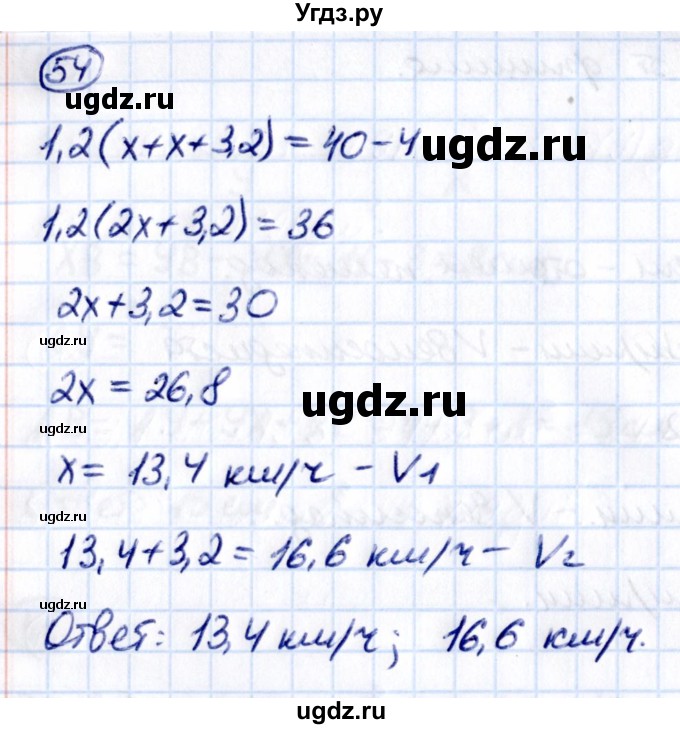 Угдз.ру
54
ugdz.ru
1,2(x+x+3,2)=40-4
ugdz.ru
1,2(2x+3,2)=36
2x+3,2=30
ugdz.ru
2x=26,8
ugdz.ru
ugdz.ru
x=13,4 км/ч - V1
ugdz.ru
13,4+3,2=16,6 км/ч - V2
ugdz.ru
Ответ: 13,4 км/ч; 16,6 км/ч.
ugdz.ru